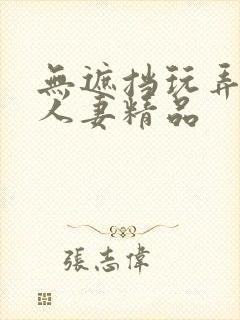 無遮挡玩弄
人妻精品
張志偉